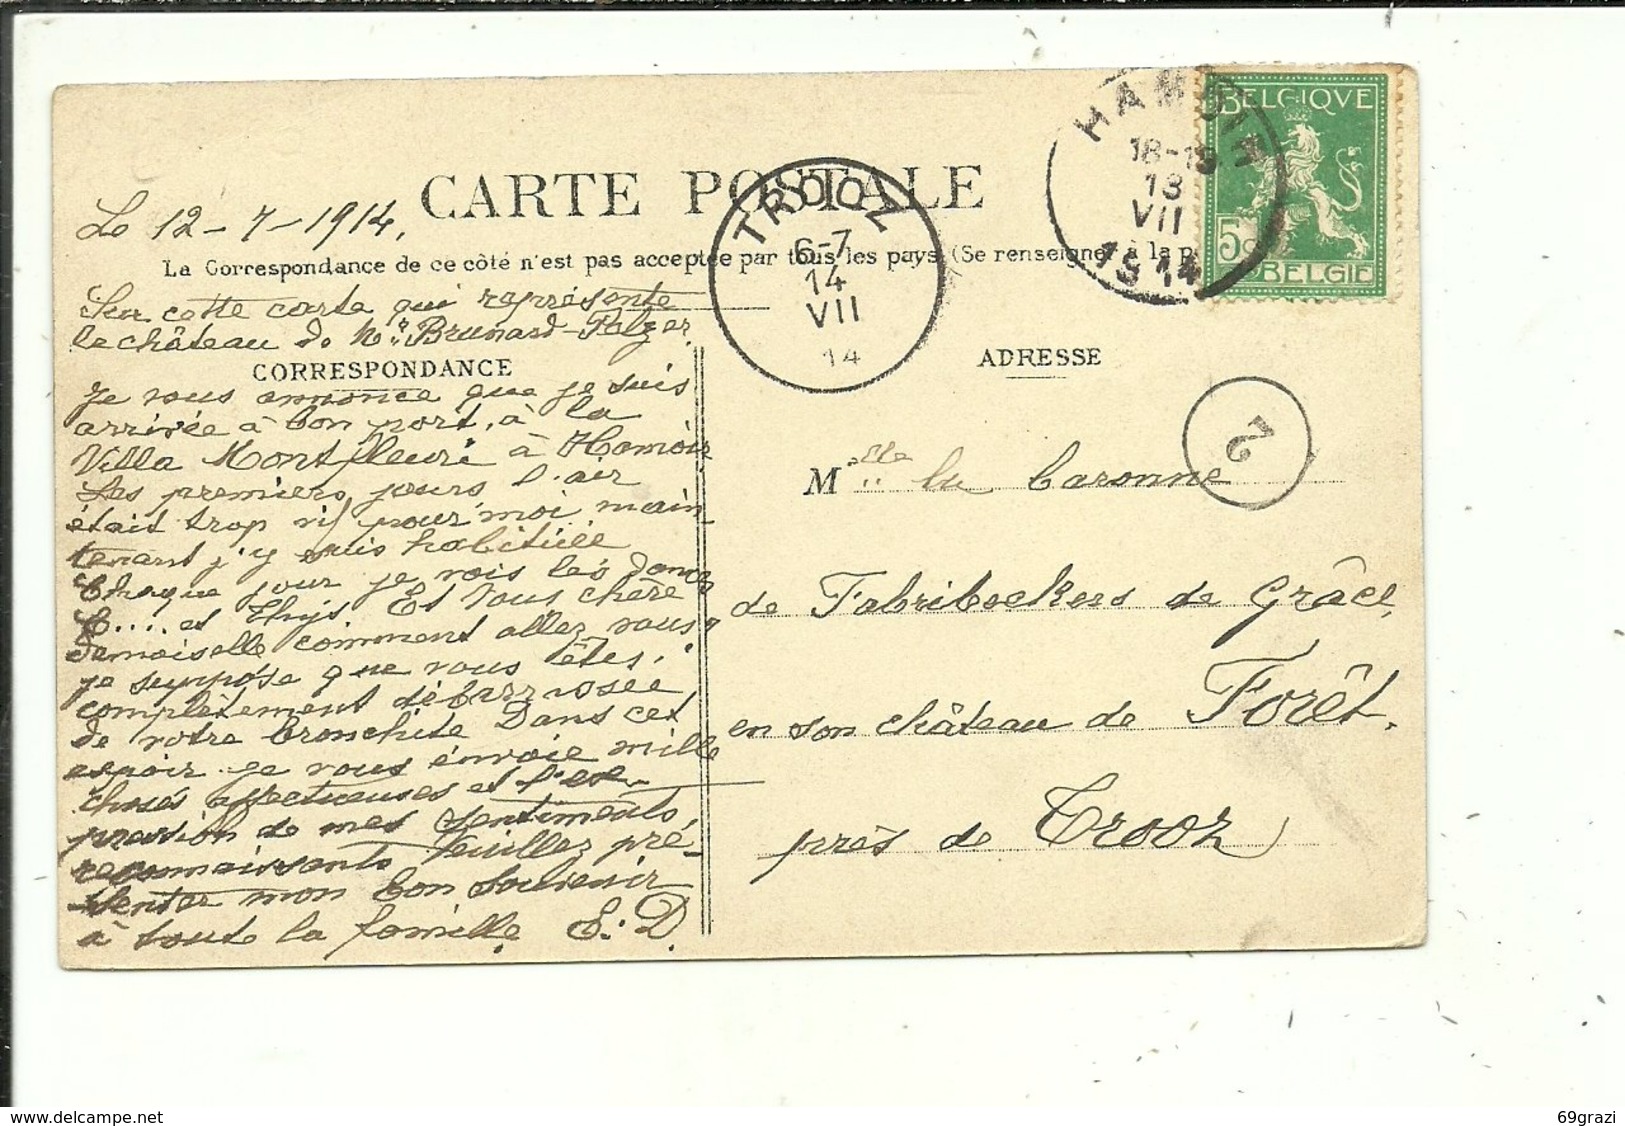 HAMOIR
18-19
13
VII
1914
BELGIQVE
5c
BELGIE
CARTE POSTALE
TROOZ
6-7
14
VII
14
Le 12-7-1914.
La Correspondance de ce côté n'est pas acceptée par tous les pays (Se renseigner à la p
Sur cette carte qui représente
le château de Mr. Brunard-Pelzer
CORRESPONDANCE
ADRESSE
2
Je vous annonce que je suis
arrivée à bon port, à la
Villa Montfleuri à Hamoir
Les premiers jours l'air
était trop vif pour moi main-
tenant j'y suis habituée
Chaque jour je vois les dames
E.... et Thijs. Et vous chère
demoiselle comment allez vous?
je suppose que vous êtes
complètement débarrassée
de votre bronchite Dans cet
espoir je vous envoie mille
choses affectueuses et l'ex-
pression de mes sentiments
reconnaissants Veuillez pré-
senter mon bon souvenir
à toute la famille E. D.
Melle la baronne
de Fabribeckers de Grâce,
en son château de Forêt.
près de Trooz
delcampe.net
69grazi